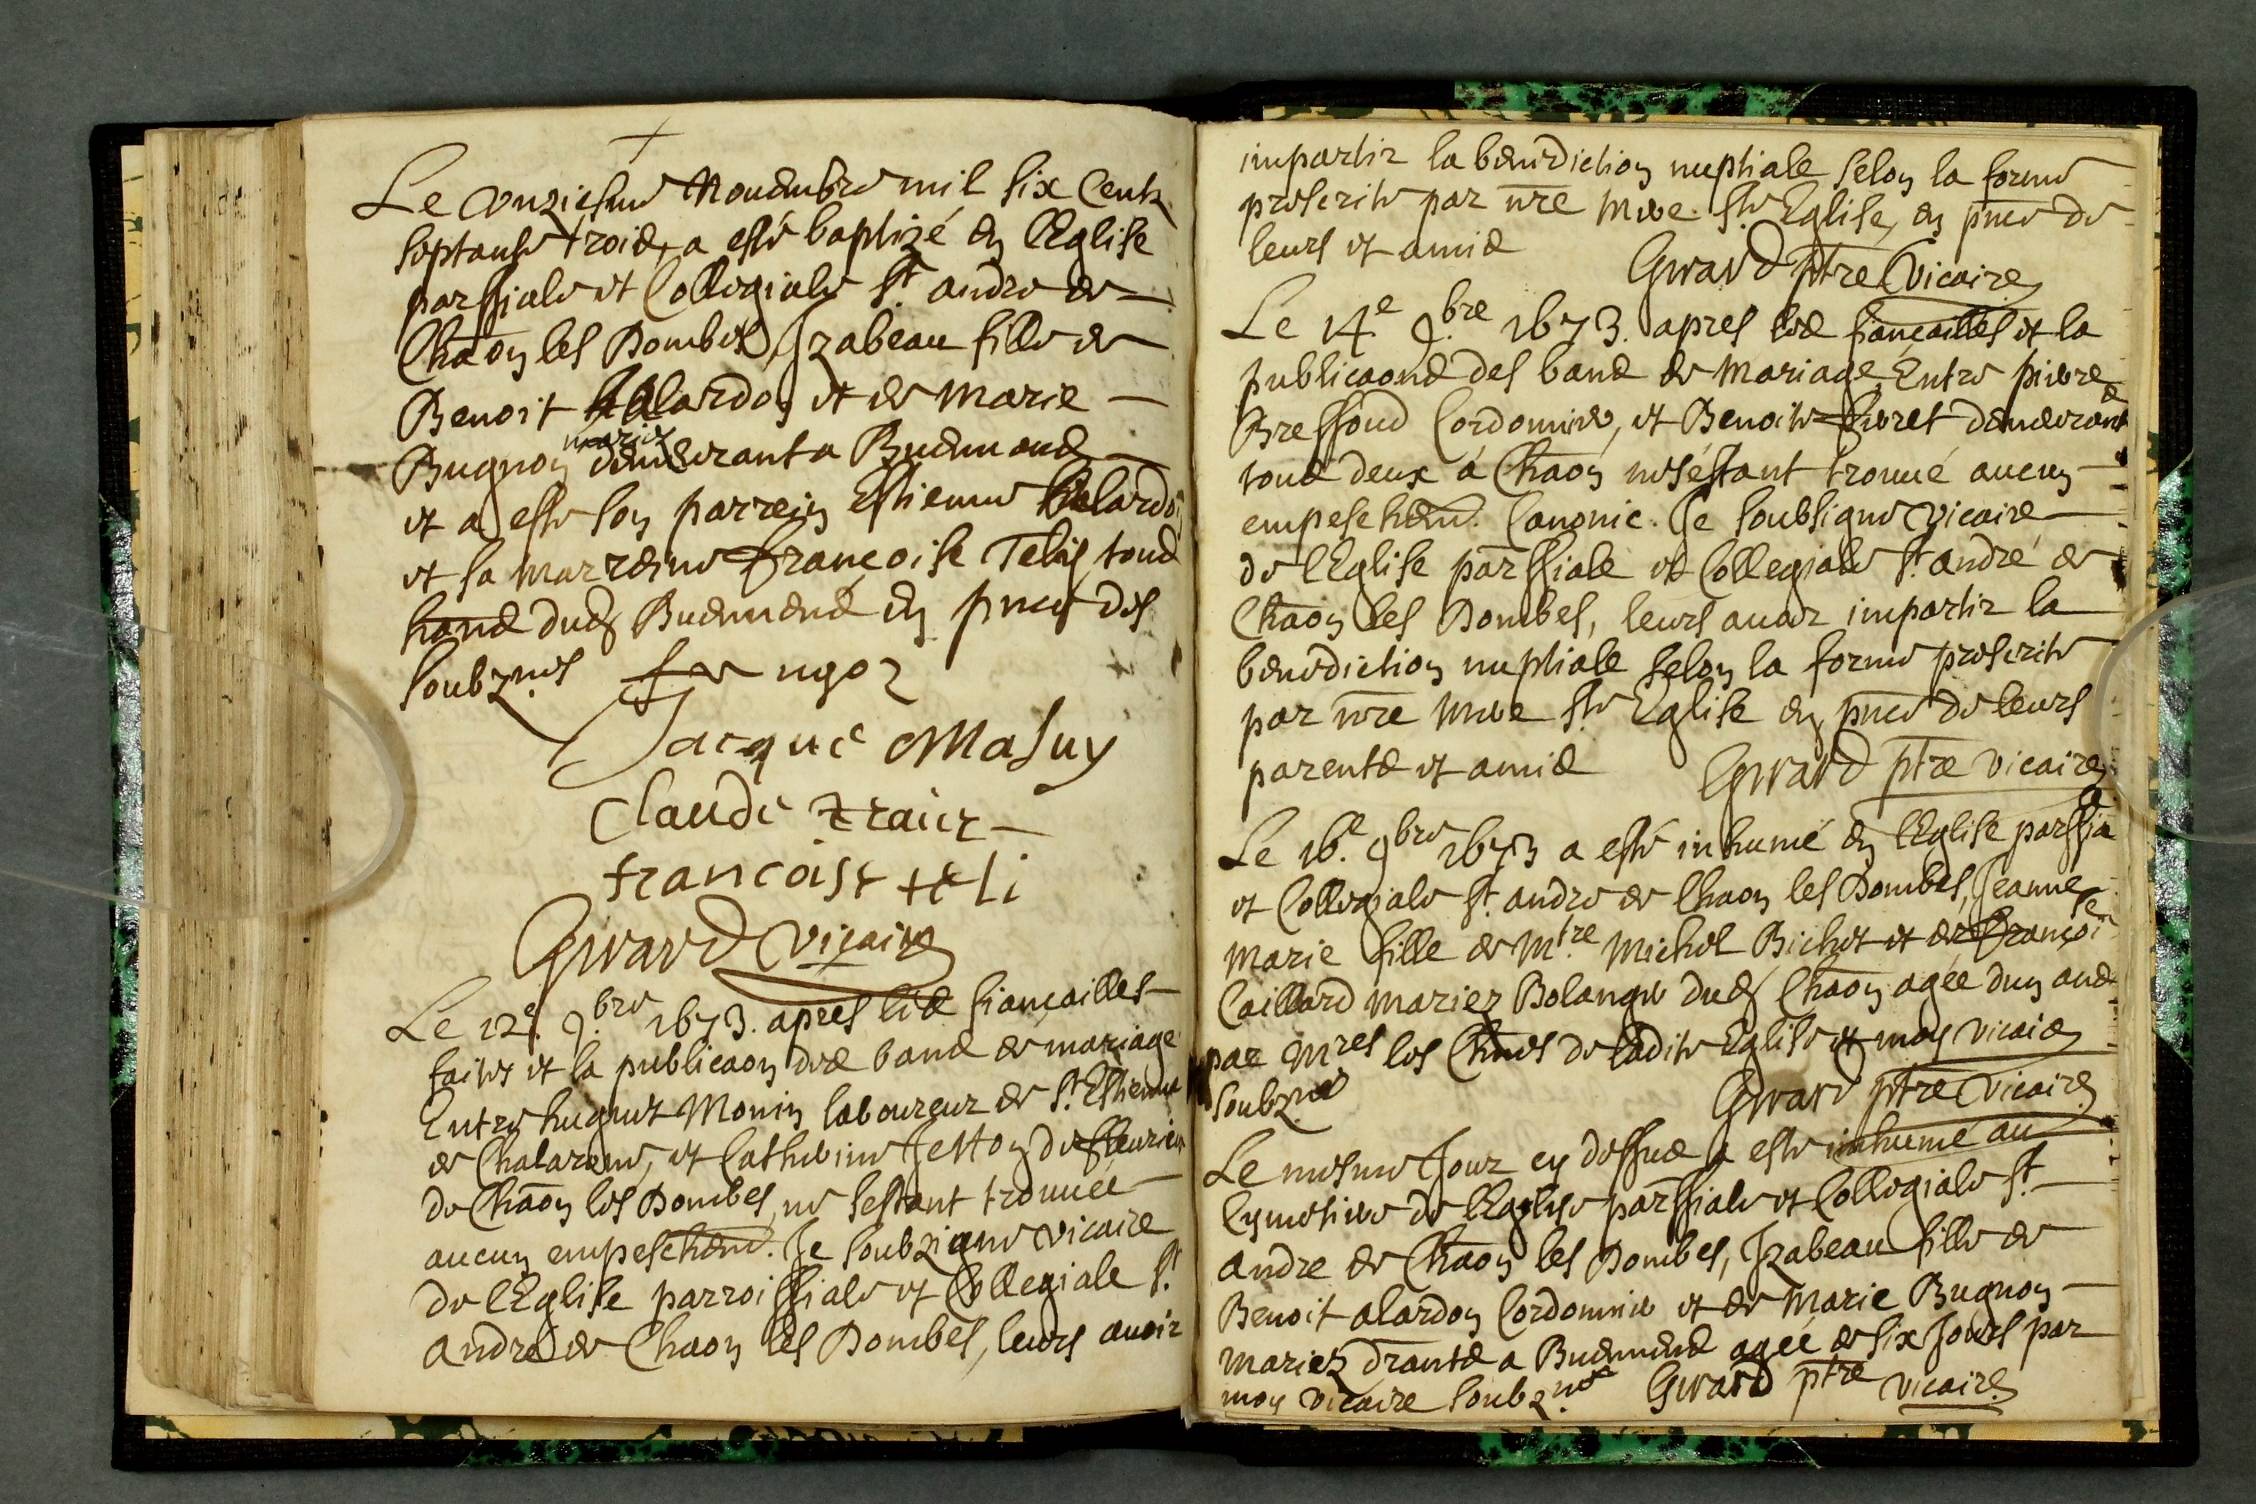 Le onziesme Nouembre mil six Centz
septante trois, a esté baptizé en l'Eglise
parssiale et Collegiale St. andre de
Chaōn les Dombes, Izabeau fille de
Benoit alardon et de Marie
mariez
Bugnon demeurant a Buenand
et a este son parrein Estienne alardon
et sa Marreine françoise Tely, tous
hans dud Buenend en pnce des
soubznes
Jacque Masuy
Claude traier
francoise teli
Girard Vicaire
Le 12e. 9.bre 1673. apres lés fiançailles
faites et la publicaon des bans de mariage
Entre huguet Monin laboureur de St. Estienne
de Chalarene, et Catherine Jetton de fleurieu
de Chaōn les Dombes, ne sestant trouueé
aucun empeschem. Je soubzigne vicaire
de l'Eglise parroissiale et Collegiale St.
André de Chaon les Dombes, leurs auoir
impartir la benediction nuptiale selon la forme
prescrite par nre Mere Ste Eglise, en pnce de
leurs et amis
Girard ptre Vicaire
Le 14e. 9.bre 1673. apres les fiançailles et la
publicaons des bans de Mariage Entre pierre
Bressoud Cordonnier, et Benoite fieret demeurant
tous deux á Chaon ne séstant trouué aucun
empeschem. Canonic. Je soubsigne vicaire
de l'Eglise parssiale et Collegiale St. andré de
Chaōn les Dombes, leurs auoir impartir la
benediction nuptiale selon la forme prescrite
par nre Mere Ste Eglise en pnce de leurs
parents et amis
Girard ptre vicaire
Le 16e. 9bre 1673 a esté inhumé en l'Eglise parssia
et Collegiale St. andre de Chaon les Dombes, Jeanne
Marie fille de Mtre Michel Bichet et de françoise
Caillard mariez Bolanger dud Chaōn agée dun ans
par Mres les Chnes de ladite Eglise et moy vicaire
soubzne
Girard ptre Vicaire
Le mesme Jour cy dessus a este inhumé au
Cymetiere de l'Eglise parssiale et Collegiale St.
andre de Chaōn les Dombes, Izabeau fille de
Benoit alardon Cordonnier et de Marie Bugnon
mariez drants a Buenend agée de six Jours par
moy vicaire soubzne
Girard ptre vicaire